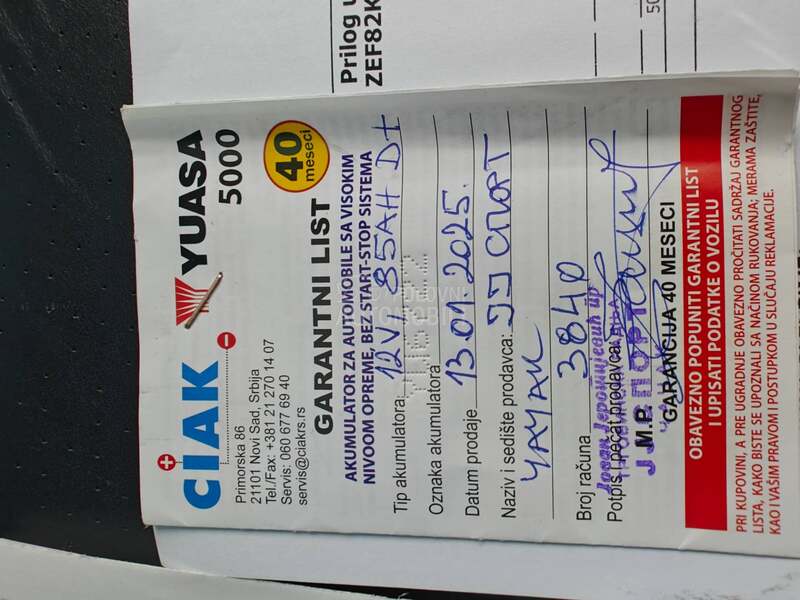 Prilog u
ZEF82K
50
CIAK
YUASA
5000
Primorska 86
21101 Novi Sad, Srbija
Tel./Fax: +381 21 270 14 07
Servis: 060 677 69 40
servis@ciakrs.rs
GARANTNI LIST
40
meseci
AKUMULATOR ZA AUTOMOBILE SA VISOKIM
NIVOOM OPREME, BEZ START-STOP SISTEMA
Tip akumulatora: 12V 85AH D+
Oznaka akumulatora
Datum prodaje 13.01.2025.
Naziv i sedište prodavca: ЈЈ СПОРТ
ЧАЧАК
Broj računa 3840
Potpis i pečat prodavca:
M.P.
GARANCIJA 40 MESECI
OBAVEZNO POPUNITI GARANTNI LIST
I UPISATI PODATKE O VOZILU
PRI KUPOVINI, A PRE UGRADNJE OBAVEZNO PROČITATI SADRŽAJ GARANTNOG
LISTA, KAKO BISTE SE UPOZNALI SA NAČINOM RUKOVANJA; MERAMA ZAŠTITE,
KAO I VAŠIM PRAVOM I POSTUPKOM U SLUČAJU REKLAMACIJE.